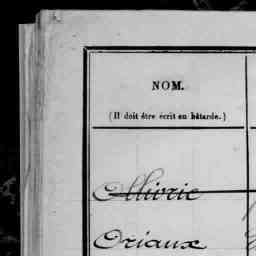 NOM.
(Il doit être écrit en bâtarde.)
Ollivric
Oriaux